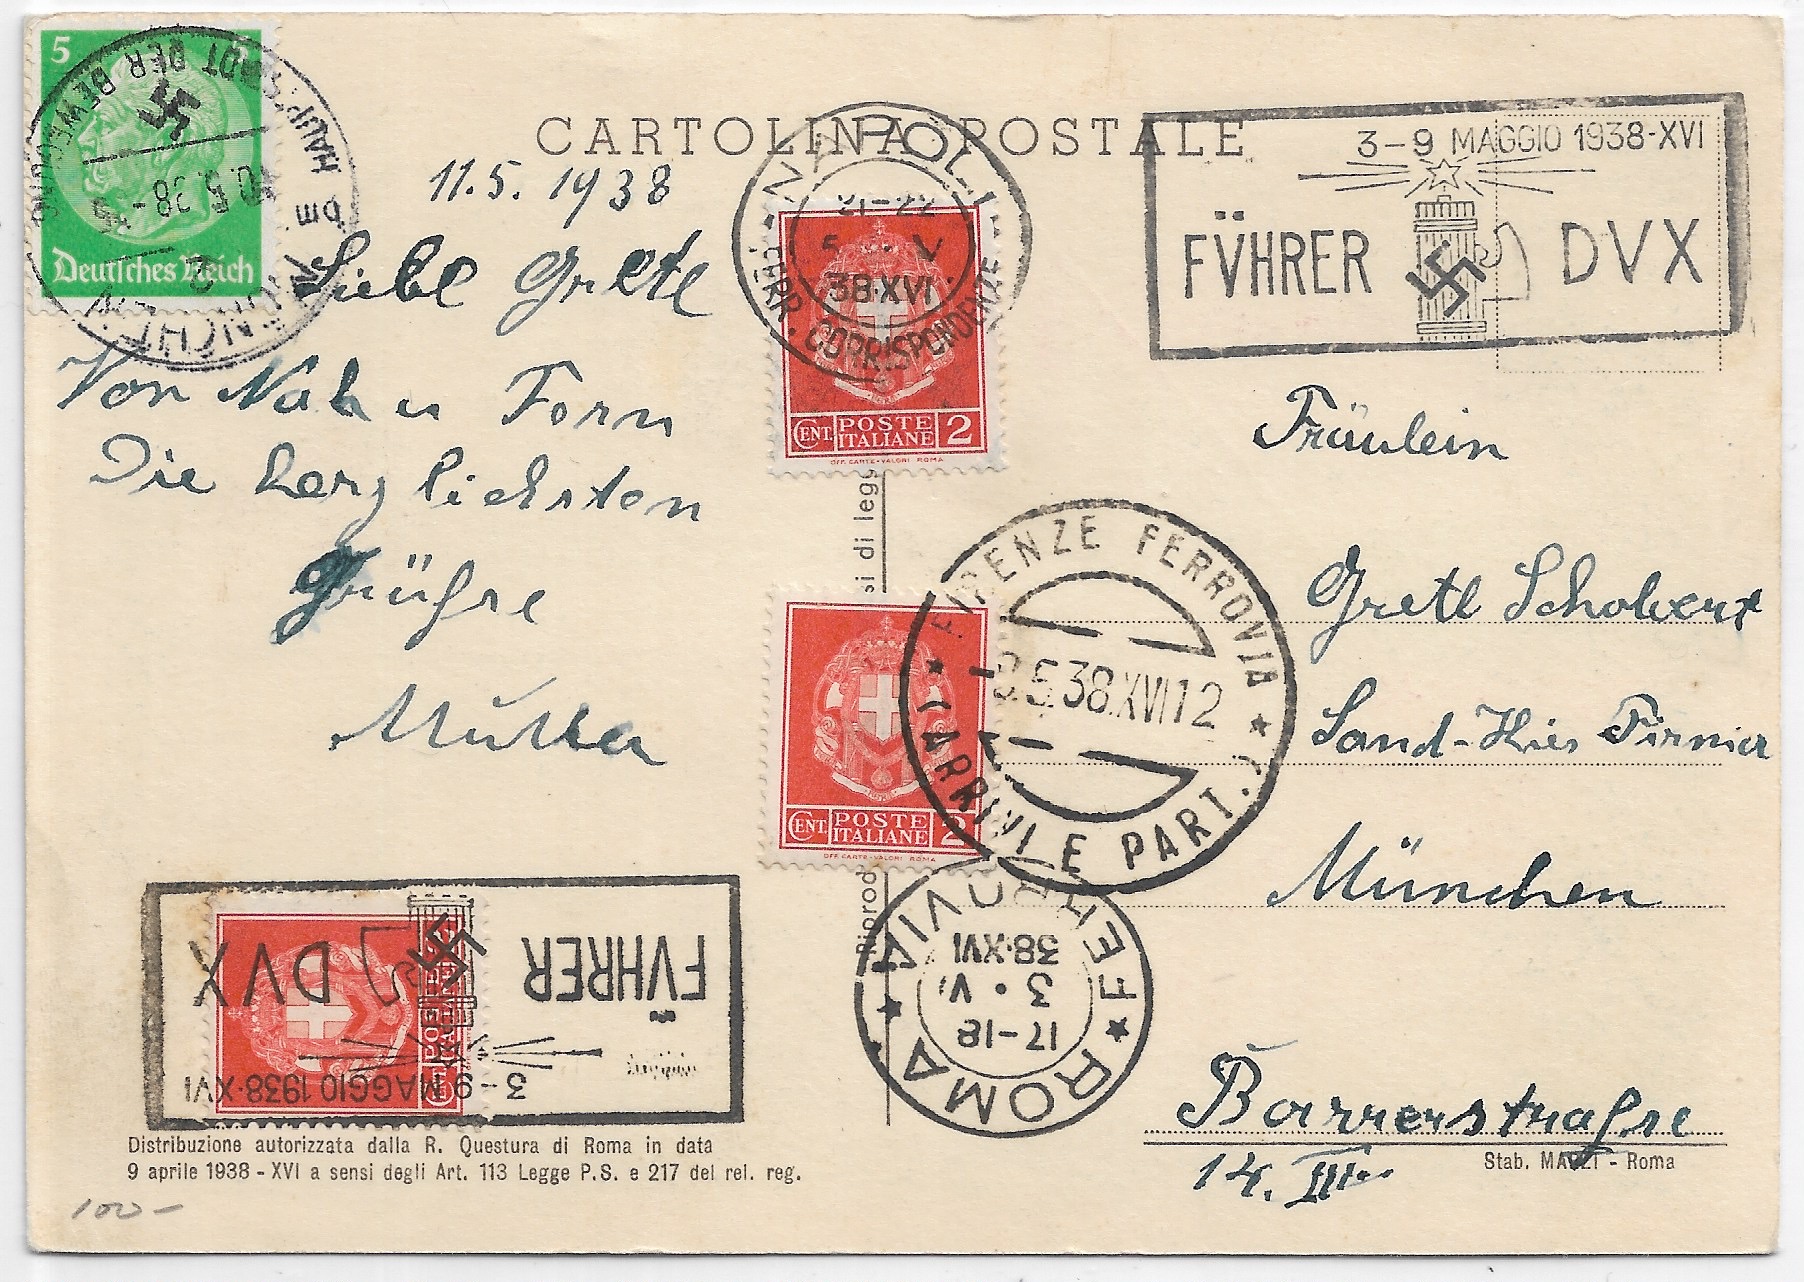 CARTOLINA POSTALE
5 5
Deutsches Reich
MÜNCHEN 2
10.5.38 - 15
HAUPTSTADT DER BEWEGUNG
11.5.1938
Liebe Gretl
Von Nah u Fern
Die herzlichsten
Grüße
Mutter
NAPOLI
21-22
5 . V
38·XVI
CORRISPONDENZE
CENT. POSTE ITALIANE 2
OFF. CARTE-VALORI ROMA
3-9 MAGGIO 1938-XVI
FVHRER DVX
FIRENZE FERROVIA
9.5.38.XVI 12
(ARRIVI E PART.)
CENT. POSTE ITALIANE 2
OFF. CARTE-VALORI ROMA
ROMA FERROVIA
17-18
3 . V
38·XVI
Fräulein
Gretl
München
Barrerstraße
14. III
3-9 MAGGIO 1938-XVI
FVHRER DVX
Riprod
si di legg
Distribuzione autorizzata dalla R. Questura di Roma in data
9 aprile 1938 - XVI a sensi degli Art. 113 Legge P.S. e 217 del rel. reg.
Stab. - Roma
100-